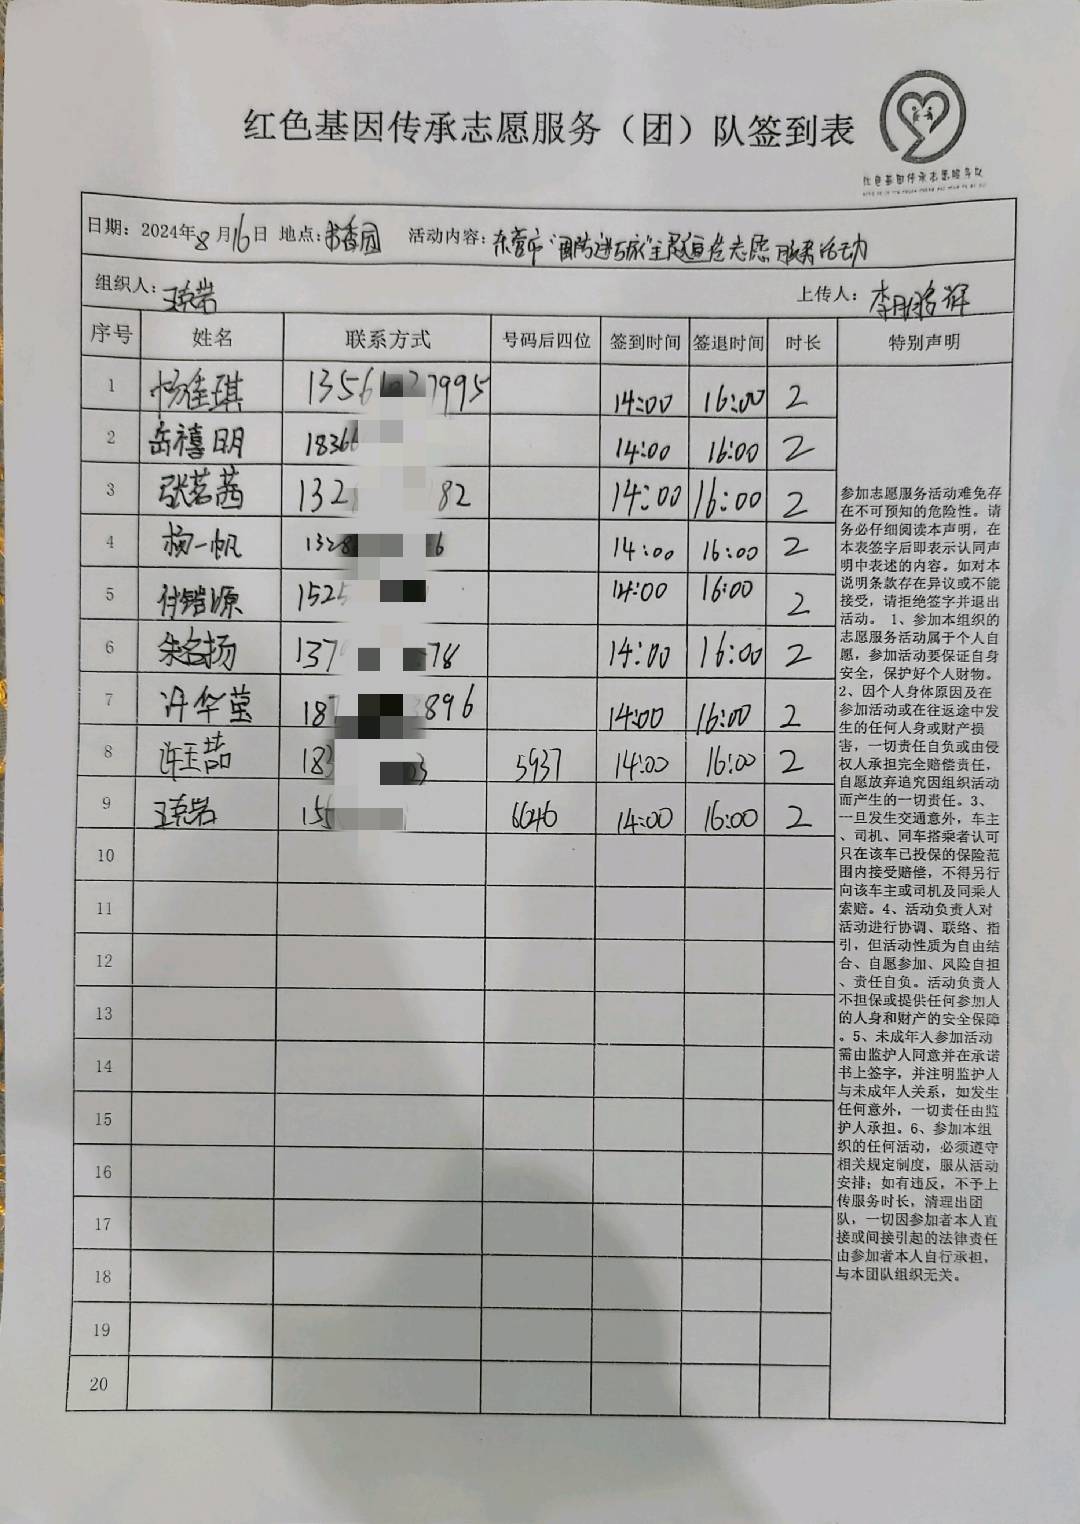 红色基因传承志愿服务（团）队签到表
红色基因传承志愿服务队
日期：2024年8月16日 地点：书香园 活动内容：东营市“国防进万家”主题宣传志愿服务活动
组织人：王克岩 上传人：李
序号 姓名 联系方式 号码后四位 签到时间 签退时间 时长 特别声明
1 杨佳琪 1356 7995 14:00 16:00 2
2 岳禧明 1836 14:00 16:00 2
3 张茗茜 132 82 14:00 16:00 2
4 杨一帆 1328 6 14:00 16:00 2
5 付锴源 1525 14:00 16:00 2
6 朱名扬 137 78 14:00 16:00 2
7 许华莹 187 896 14:00 16:00 2
8 许玉喆 183 03 5937 14:00 16:00 2
9 王克岩 155 6646 14:00 16:00 2
10
11
12
13
14
15
16
17
18
19
20
参加志愿服务活动难免存
在不可预知的危险性。请
务必仔细阅读本声明，在
本表签字后即表示认同声
明中表述的内容。如对本
说明条款存在异议或不能
接受，请拒绝签字并退出
活动。 1、参加本组织的
志愿服务活动属于个人自
愿，参加活动要保证自身
安全，保护好个人财物。
2、因个人身体原因及在
参加活动或在往返途中发
生的任何人身或财产损
害，一切责任自负或由侵
权人承担完全赔偿责任，
自愿放弃追究因组织活动
而产生的一切责任。3、
一旦发生交通意外，车主
、司机、同车搭乘者认可
只在该车已投保的保险范
围内接受赔偿，不得另行
向该车主或司机及同乘人
索赔。4、活动负责人对
活动进行协调、联络、指
引，但活动性质为自由结
合、自愿参加、风险自担
、责任自负。活动负责人
不担保或提供任何参加人
的人身和财产的安全保障
。5、未成年人参加活动
需由监护人同意并在承诺
书上签字，并注明监护人
与未成年人关系，如发生
任何意外，一切责任由监
护人承担。6、参加本组
织的任何活动，必须遵守
相关规定制度，服从活动
安排；如有违反，不予上
传服务时长，清理出团
队，一切因参加者本人直
接或间接引起的法律责任
由参加者本人自行承担，
与本团队组织无关。